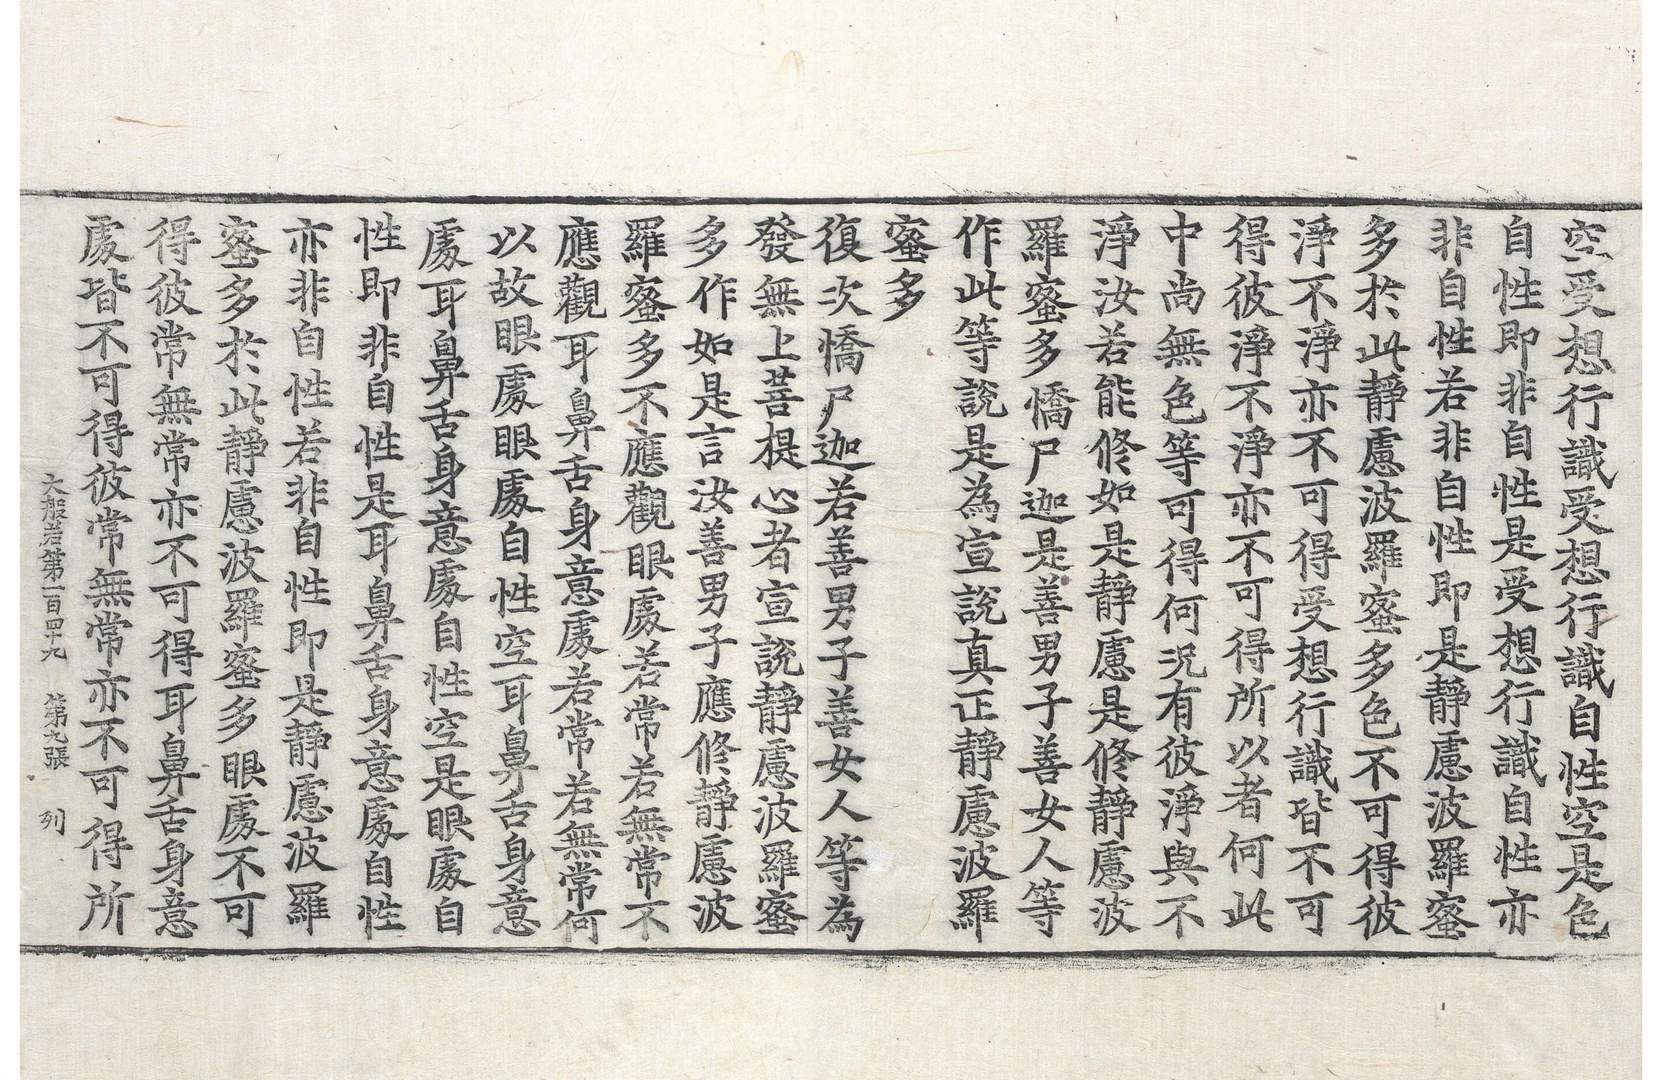 空受想行識受想行識自性空是色
自性即非自性是受想行識自性亦
非自性若非自性即是靜慮波羅蜜
多於此靜慮波羅蜜多色不可得彼
淨不淨亦不可得受想行識皆不可
得彼淨不淨亦不可得所以者何此
中尚無色等可得何況有彼淨與不
淨汝若能修如是靜慮是修靜慮波
羅蜜多憍尸迦是善男子善女人等
作此等說是為宣說真正靜慮波羅
蜜多
復次憍尸迦若善男子善女人等為
發無上菩提心者宣說靜慮波羅蜜
多作如是言汝善男子應修靜慮波
羅蜜多不應觀眼處若常若無常不
應觀耳鼻舌身意處若常若無常何
以故眼處眼處自性空耳鼻舌身意
處耳鼻舌身意處自性空是眼處自
性即非自性是耳鼻舌身意處自性
亦非自性若非自性即是靜慮波羅
蜜多於此靜慮波羅蜜多眼處不可
得彼常無常亦不可得耳鼻舌身意
處皆不可得彼常無常亦不可得所
大般若第一百四十九 第九張 列